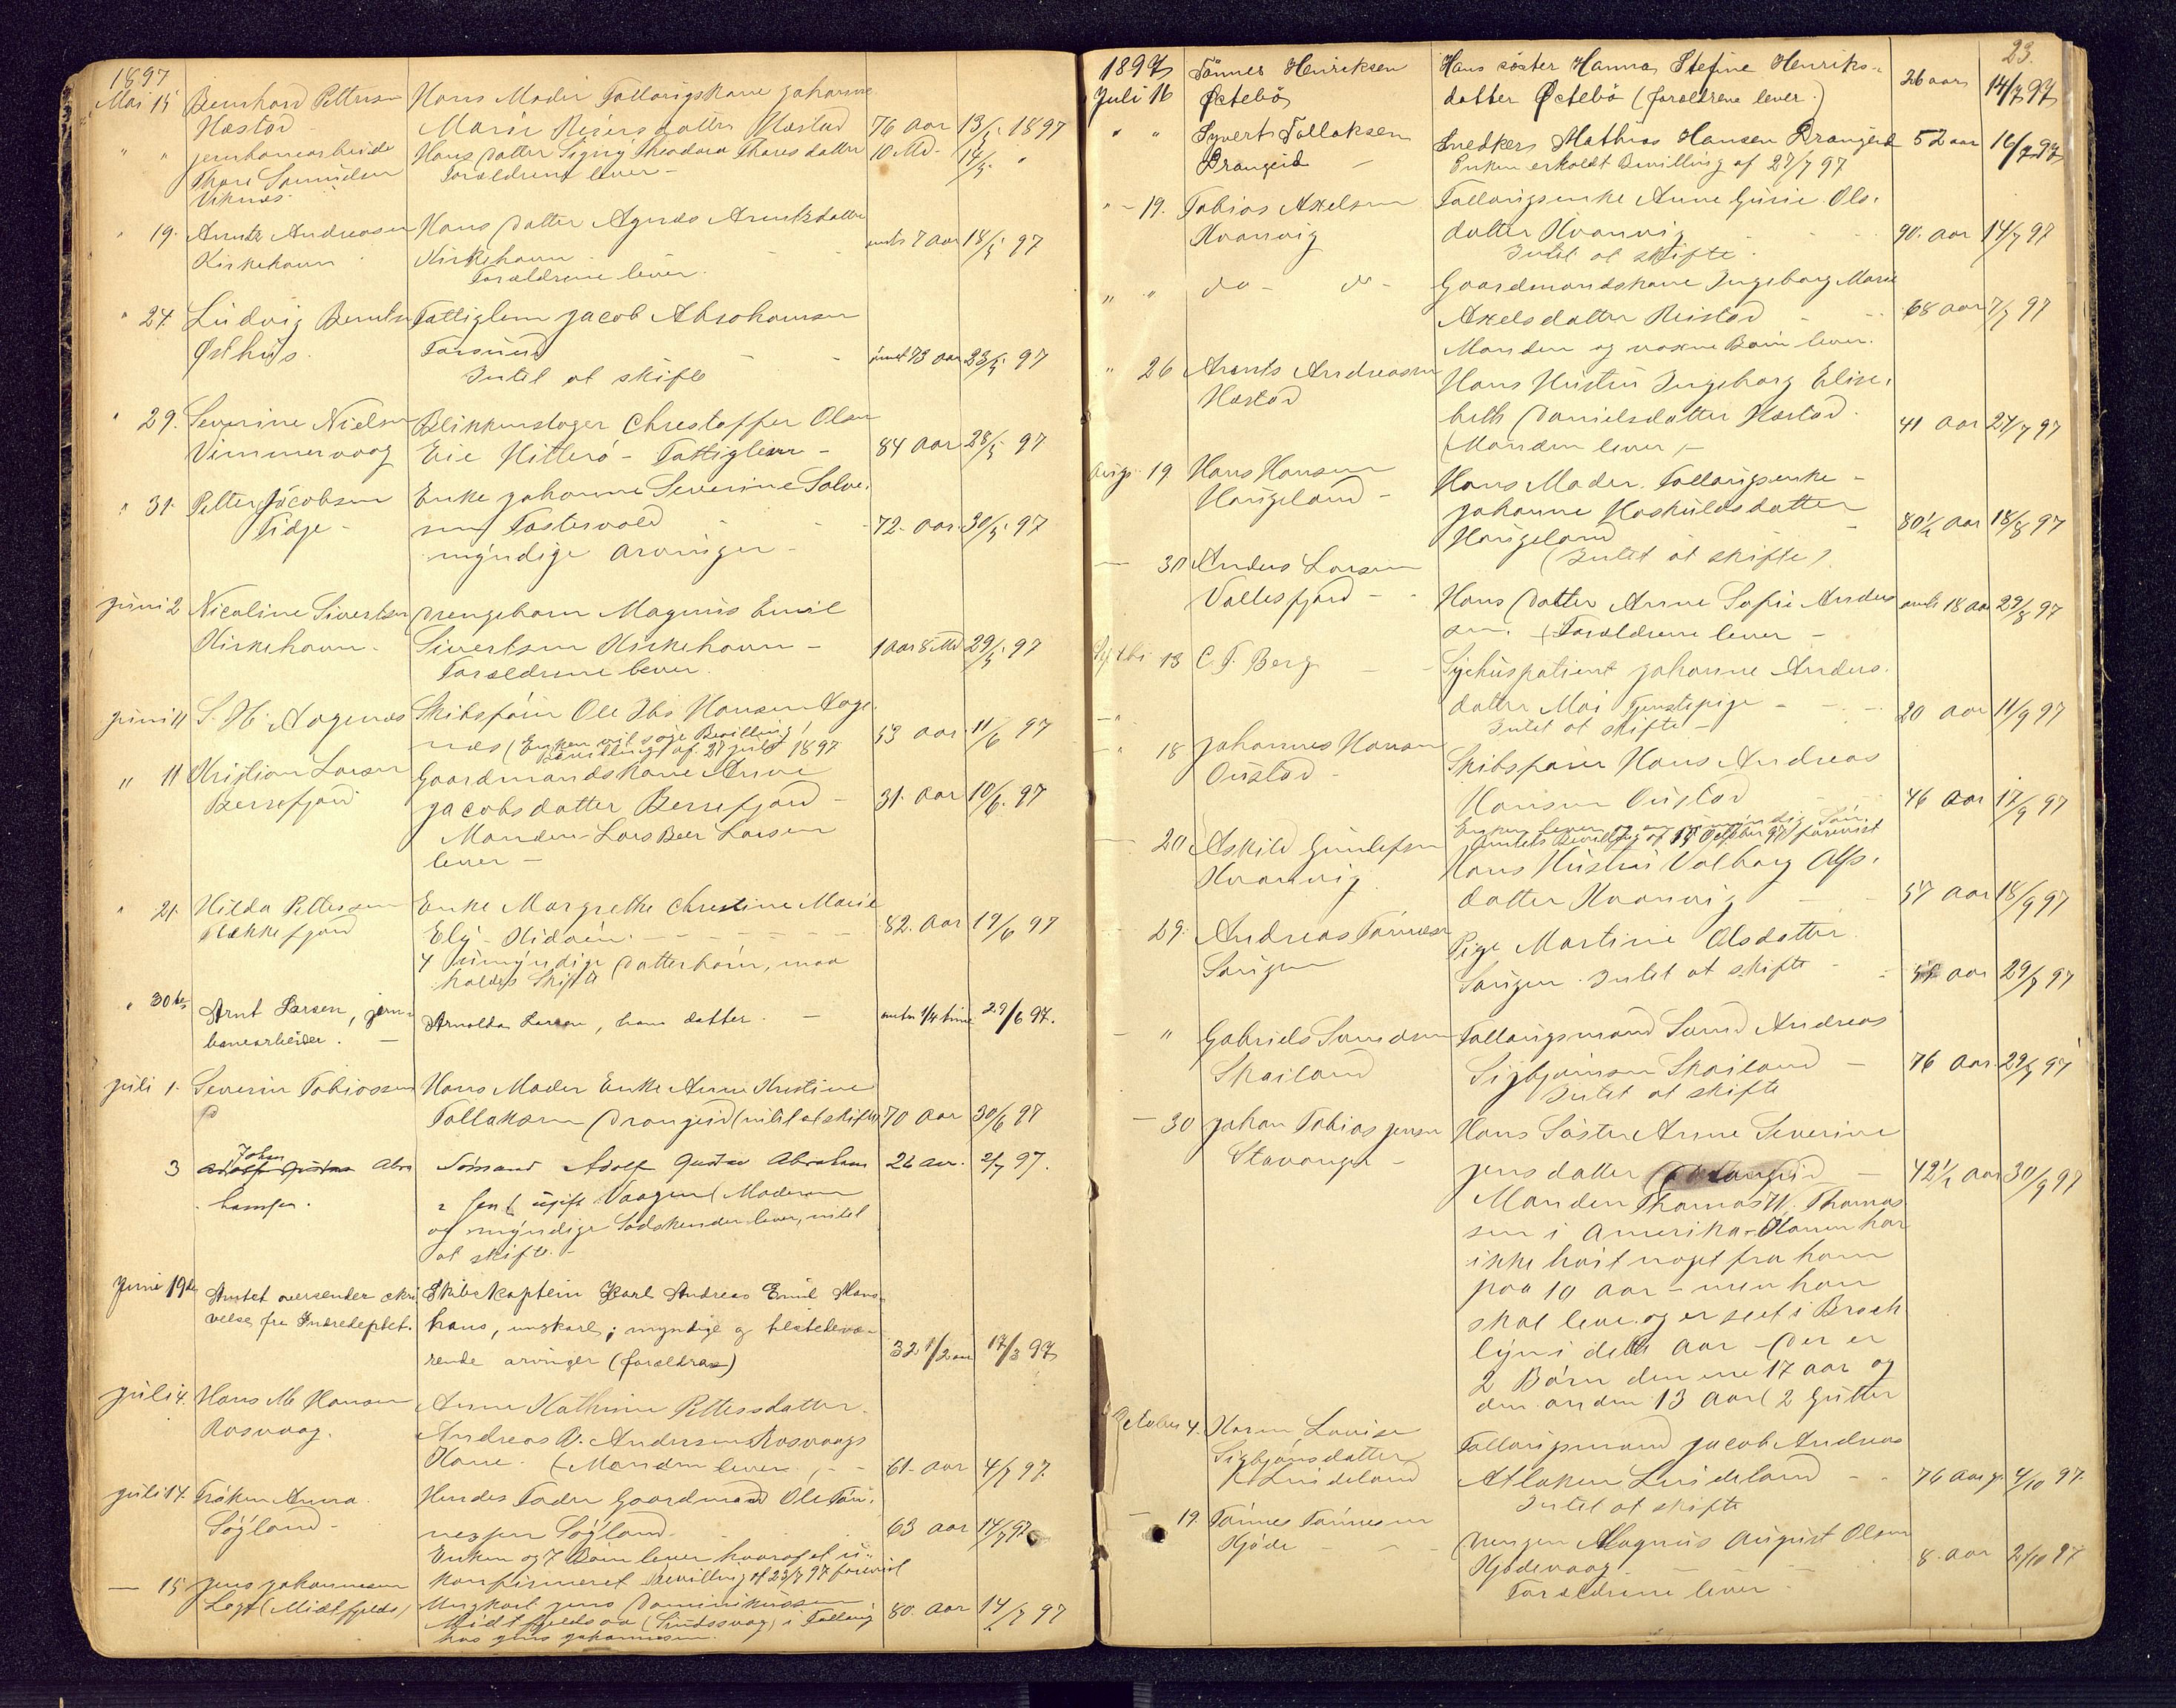 1897
Mai 15 Bernhard Pettersen Hans Moder Fattigskone Johanne
Hæstad Marie Reiersdatter Hæstad 76 aar 13/5 1897
" " jernbanearbeide Hans Datter Signy Theodora Thoresdatter 10 Md. 14/5 "
Thore Samuelsen Forældrene lever -
Viknes
" 19. Arntz Andreasen Hans Datter Agnes Arntzdatter
Kirkehavn Kirkehavn - 7 aar 18/5 97
Forældrene lever.
" 24. Ludvig Berntsen Fattiglem Jacob Abrahamsen
Østhus. Farsund - 73 aar 23/5 97
Intet at skifte
" 29. Severine Nielsen Blikkenslager Christoffer Olsen
Vimmervaag Eie Hitterö - Fattiglem - 84 aar 28/5 97
" 31. Petter Jacobsen Enke Johanne Severine Salve-
Fidje - sen Fastervold - 72. aar. 30/5 97
myndige arvinger -
Juni 2 Nicoline Sivertsen Drengebarn Magnus Emil
Kirkehavn - Sivertsen Kirkehavn - 1 aar 8 Md 29/5 97
Forældrene lever.
Juni 11 S. H. Aagenæs Skibsfører Ole Ibs Hansen Aage-
næs (Enken vil søge Bevilling) 53 aar 11/6 97
Bevilling af 27 juli 1897
" 11 Kristian Larsen Gaardmandskone Anne
Berrefjord Jacobsdatter Berrefjord - 31. aar 10/6. 97
Manden Lars Beer Larsen
lever -
" 21. Hilda Pettersen Enke Margrethe Christine Marie
Flekkefjord Ely - Hidøen. - 82. aar 19/6 97
4 umyndige Datterbørn, maa
holdes Skifte
" 30te Arnt Larsen, jern- Arnolda Larsen, hans datter. - 1/4 time 29/6 97.
banearbeider. -
Juli 1. Severin Tobiassen Hans Moder Enke Anne Kristine
Tollaksen Drangeid (intet at skifte) 70 aar 30/6 97
3 John Abra Sømand Adolf Gustav Abraham 26 aar. 2/7 97.
hamsen. sen (ugift Vaagen (Moderen
og myndige Sødskender lever, intet
at skifte. -
Juni 19de Amtet oversender skri- Skibskaptein Karl Andreas Emil Hans-
velse fra Indredeptet. hans, ungkarl; myndige og tilstedevæ-
rende arvinger (forældrene) 32 1/2 aar 17/3 97
Juli 4. Hans M Hansen Anne Kathrine Pettersdatter
Rosvaag. Andreas V. Andersen Rosvaags
Kone. (Manden lever - 61. aar 4/7 97.
Juli 14. Frøken Anna Hendes Fader Gaardmand Ole Tøn-
Søyland - nessen Søyland. 63 aar 14/7 97
Enken og 7 Børn lever hvoraf et u-
konfirmeret Bevilling af 23/7 97 forevist
- 15 Jens Johannesen Ungkarl Jens Dominikussen
Løgt (Midtfjelds) Midtfjeldsaa (Sundsvaag) i Fattig 80. aar 14/7 97
hos Jens Johannesen.
23.
1897 Tönnes Henriksen Hans söster Hanna Stefine Henriks-
Juli 16 Östebö datter Östebö (forældrene lever.) 26 aar 14/7 97
" " Syverts Tollaksen Snedker Mathias Hansen Drangeid 52 aar 16/7 97
Drangeid - Enken erholdt Bevilling af 27/7 97
" - 19. Tobias Axelsen Fattigsenke Anne Gurie Ols-
Kvanvig datter Kvanvig 90. aar 14/7 97
Intet at skifte.
" " do - do - Gaardmandskone Ingeborg Marie
Axelsdatter Reistad - 68 aar 7/7 97
Manden og voxne Børn lever.
" 26 Arnts Andreasen Hans Hustru Ingeborg Elise-
Hæstad beth Danielsdatter Hæstad. 41 aar 24/7 97
(Manden lever, -
Aug. 19. Hans Hansen Hans Moder. Fattigsenke -
Haugeland - Johanne Haskuldsdatter
Haugeland 80 1/2 aar 18/8 97
(Intet at skifte)
- 30 Anders Larsen
Vollesfjord - Hans Datter Anne Sofie Anders 18 aar 29/8 97
sen. (Forældrene lever -
Septbr 13 C. F. Berg - Sygehuspatient Johanne Anders-
datter Moi Tjenstepige - 20 aar 11/9 97
Intet at skifte -
- " 18 Johannes Hansen Skibsfører Hans Andreas
Oustad - Hansen Oustad 46 aar 17/9 97
Enken lever og en umyndig Søn.
Amtets Bevilling af 14 October 97 forevist
- 20 Askild Gundersen Hans Hustru Valborg Alfs-
Kvanvig. datter Kvanvig - 57 aar 18/9 97
- 29. Andreas Tønnesen Pige Martine Olsdatter
Saugen Saugen. Intet at skifte - aar 29/9 97
- " Gabriels Samdsen Fattigsmand Samd Andreas
Skailand Sigbjørnsen Skailand - 76 aar. 29/9 97
Intet at skifte
- 30 Johan Tobias Jensen Hans Søster Anne Severine
Stavanger - Jensdatter Drangeid - 42 1/2 aar 30/9 97
Manden Thomas W. Thomas-
sen i Amerika. Konen har
ikke hørt noget fra ham
paa 10 aar - men han
skal leve og er seet i Brock
lyn i dette aar - Der er
2 Børn den ene 17 aar og
den anden 13 aar (2 Gutter
October 4. Karen Lovise Fattigsmand Jacob Andreas
Sigbjørnsdatter
Lindeland Atlaksen Lindeland - 76 aar 4/10 97.
Intet at skifte
- 19. Tønnes Tønnesen Drengen Magnus August Olsen
Hjøde - Hjødevaag - 8. aar 2/10 97
Forældrene lever -